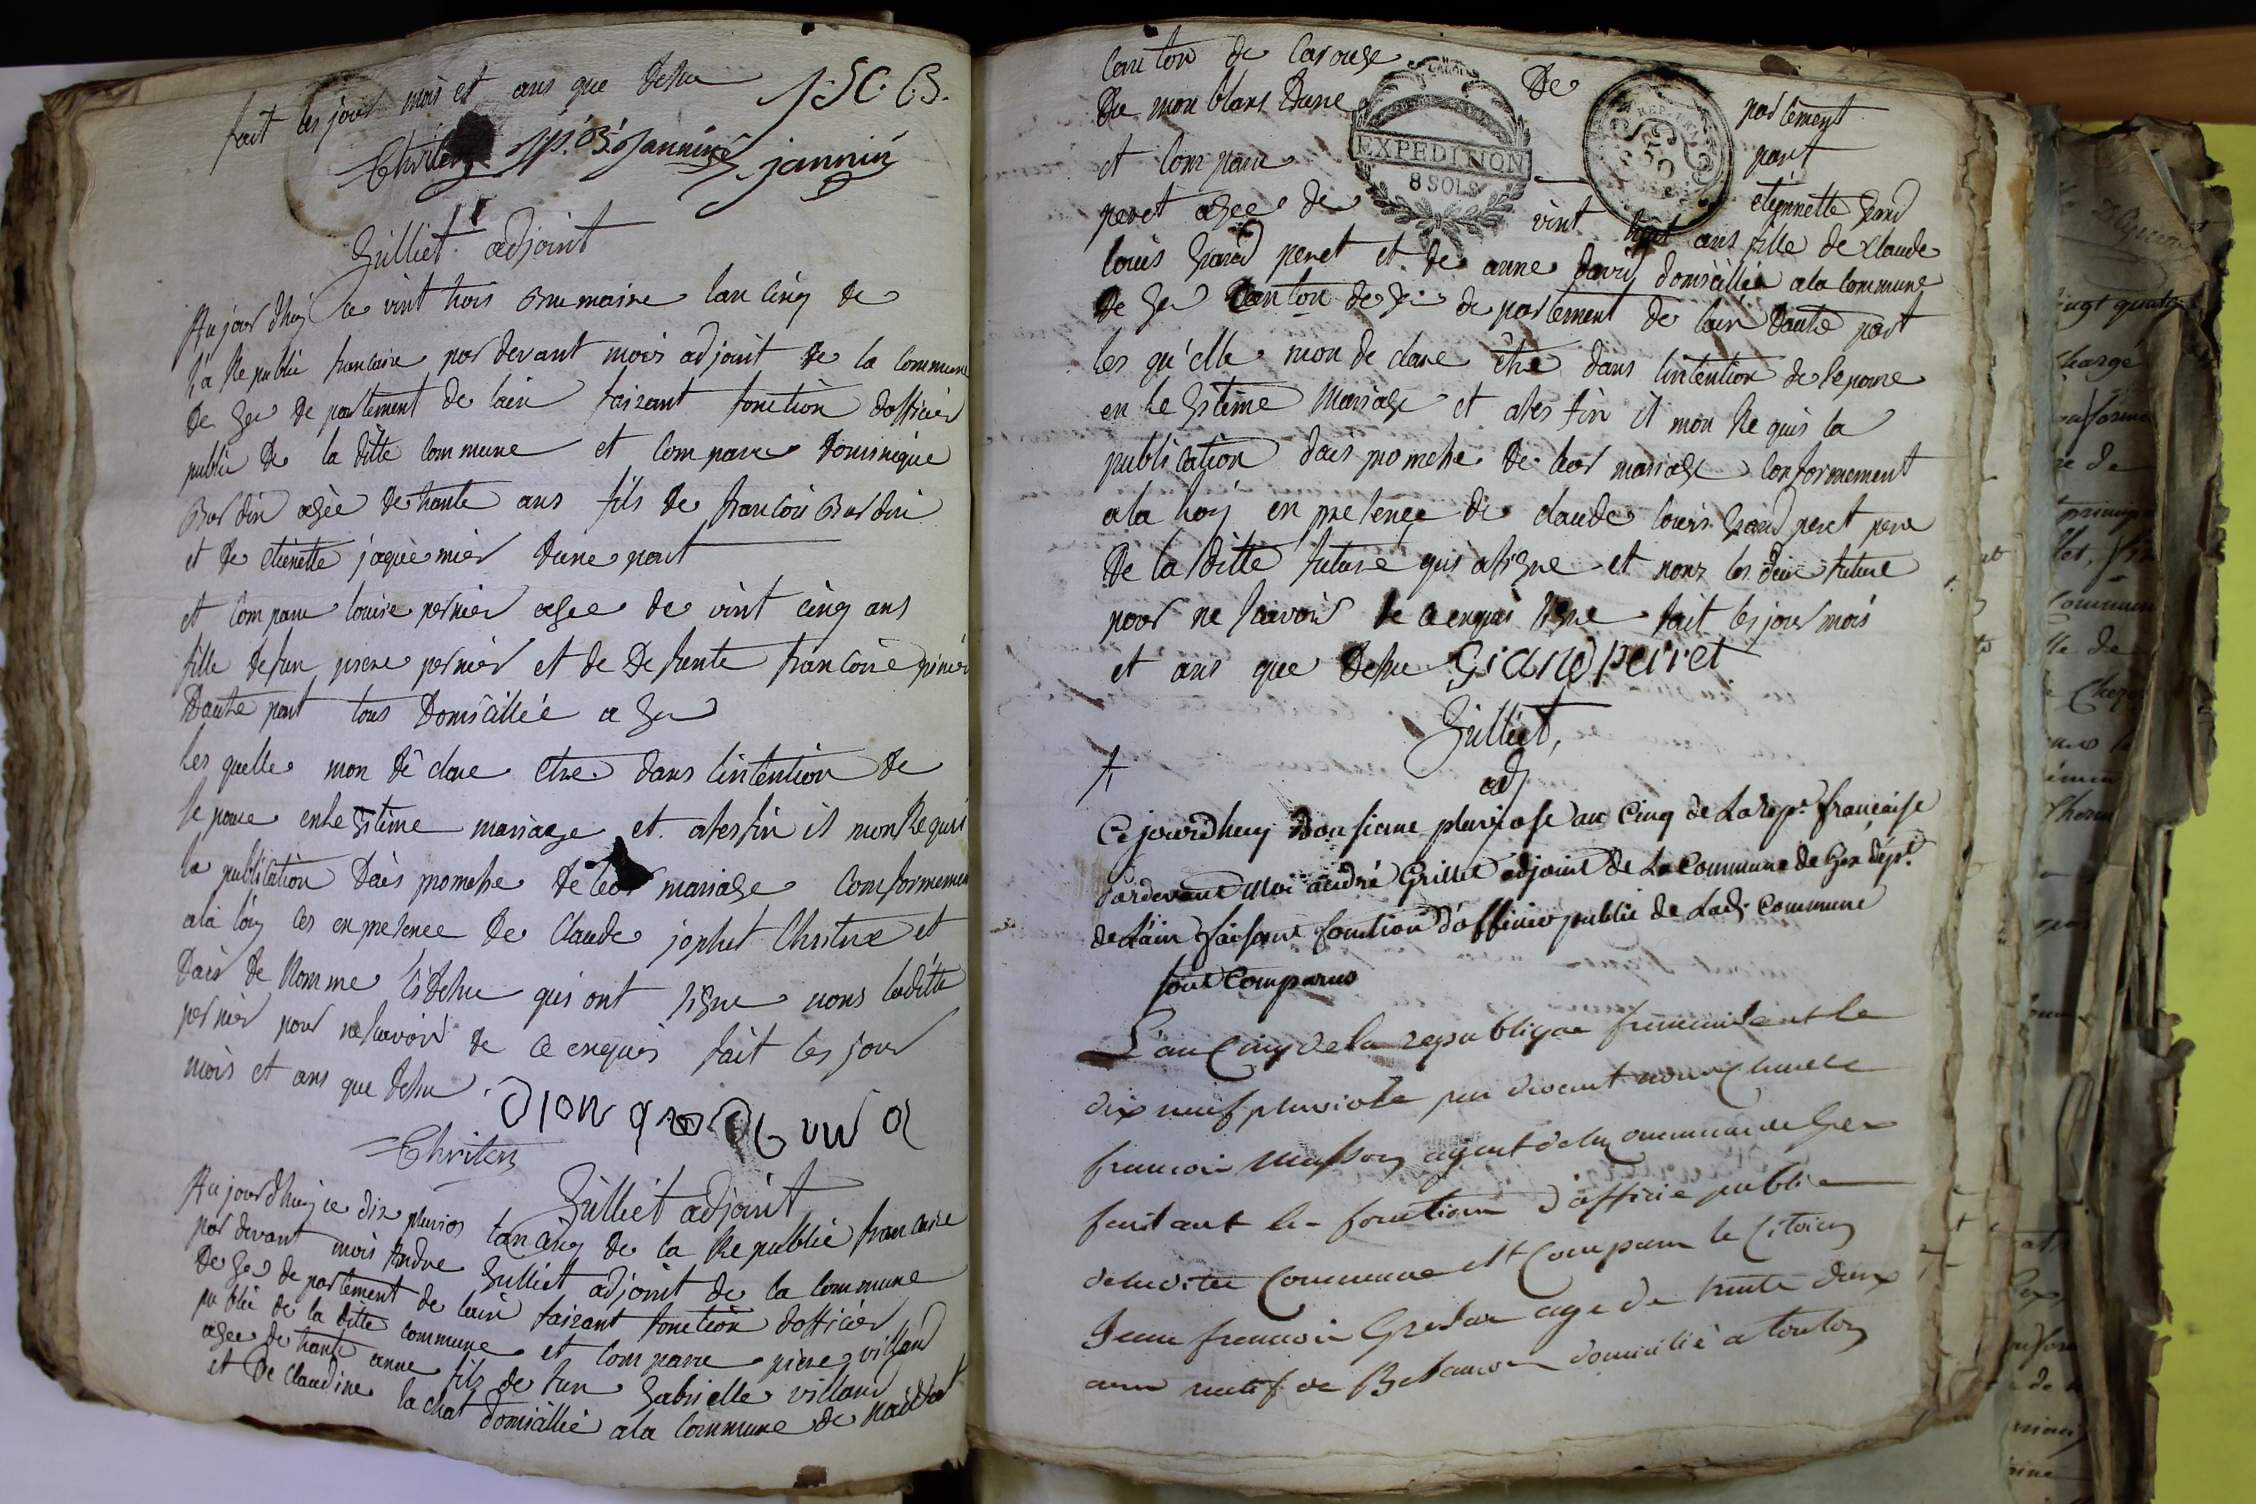 fait les jour mois et ans que desu
J. S C. B.
Christin jp. B. jannin jannin
Grilliet adjoint
Aujourdhuy ce vint trois Brumaire lan cinq de
la Republic francaire par devant mois adjoint de la commune
De Gex De partement de lain faisant fonction dofficier
public De la ditte commune et compare Dominique
Burdin agèe de trante ans fils de francois Burdin
et de etienette jaquèmier dune part
et compare louise pernier agee de vint cinq ans
fille defun piere pernier et de Defunte francoise
Dautre part tous Domicilliée a Gex
les quelle mon dè clare etre dans lintention de
se poure enlegitime mariage et ates fin il mon Requis
la publication Daes promesse de leur mariage conformement
ala loy les en presence de Claude josphet et
Daes de Nomme Cidesu qui ont signe nons laditte
pernier pour ne savoir de ce enquis fait les jour
mois et ans que desu
Christin
Grilliet adjoint
Aujourdhuy ce dix pluvios lan cinq de la Republic francaire
par devant mois Andre Grilliet adjoint de la commune
De Gex de partement de lain faisant fonction dofficier
public de la ditte commune et compare piere villard
agee de trante anne fils de fun Gabrielle villard
et De Claudine lachat domicillie ala commune de
canton de Carouge De partement
Du mon blanc Dune part
EXPEDITION
8 SOLS
et compare etiennette Grand
peret agee de vint huit ans fille de Claude
louis Grand peret et de anne david domicillièe ala commune
de Gex Canton de Gex de partement de lain dautre part
les qu'elle mon de clare être dans lintention de se poure
en le gitime Mariage et ates fin il mon Re quis la
publication daes promesse de leur mariage conformement
ala loy en presence de claude louis Grand peret pere
De la ditte future qui a signe et nons les deux future
pour ne savoir de ce enquis signe fait les jour mois
et ans que desu Grand perret
Grilliet,
adj
Cejourdhuy Dousieme pluviose an Cinq de La rep.e française
Pardevant Moi andré Grilliet adjoint de La Commune de Gex dép.t
de L'ain faisant fonction d'officier public de Lad. Commune
sont Comparus
L'an Cinq de la republique francaise et le
dix neuf pluviose par devant nous Claude
francois Masson agent de la commune de Gex
faisant les fonctions d'officie public
de laditte Commune est Comparu le Citoien
Jean francois age de trente deux
ans natif de Besancon domicilié a toulon